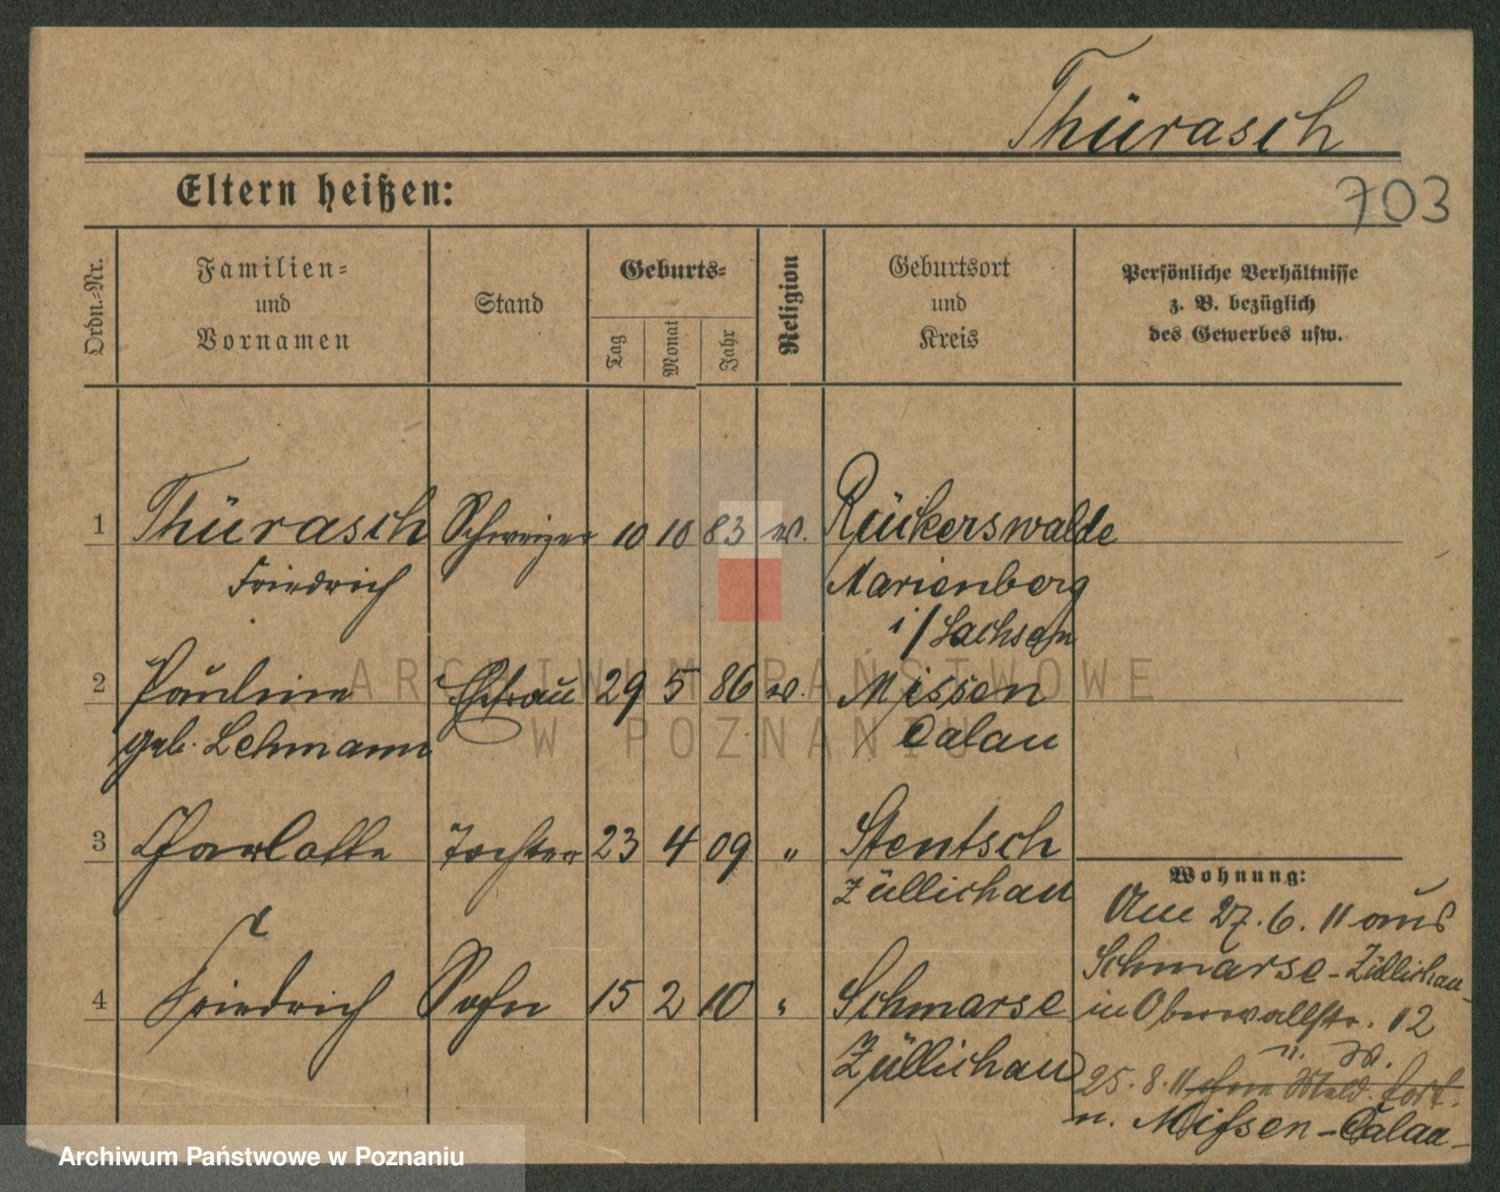 Thürasch
Eltern heißen:
703
Ordn.-Nr.
Familien-
und
Vornamen
Stand
Geburts-
Tag
Monat
Jahr
Religion
Geburtsort
und
Kreis
Persönliche Verhältnisse
z. B. bezüglich
des Gewerbes usw.
1 Thürasch Schweizer 10 10 83 ev. Rückerswalde
Friedrich Marienberg
i/Sachsen
2 Pauline Ehefrau 29 5 86 ev. Missen
geb. Lehmann Calau
3 Charlotte Tochter 23 4 09 " Stentsch
Züllichau
4 Friedrich Sohn 15 2 10 " Schmarse
Züllichau
Wohnung:
Am 27. 6. 11 aus
Schmarse-Züllichau
in Oberwallstr. 12
25. 8. 11 ohne Meld. fort.
n. Mißen-Calau
ARCHIWUM PAŃSTWOWE
W POZNANIU
Archiwum Państwowe w Poznaniu